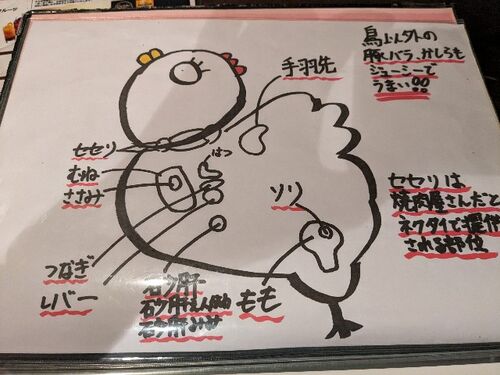 鳥以外の
豚バラ、かしらも
ジューシーで
うまい!!
手羽先
セセリ
むね
ささみ
はつ
ソリ
セセリは
焼肉屋さんだと
ネクタイで提供
される部位
つなぎ
レバー
砂肝
砂肝
砂肝みせ
もも